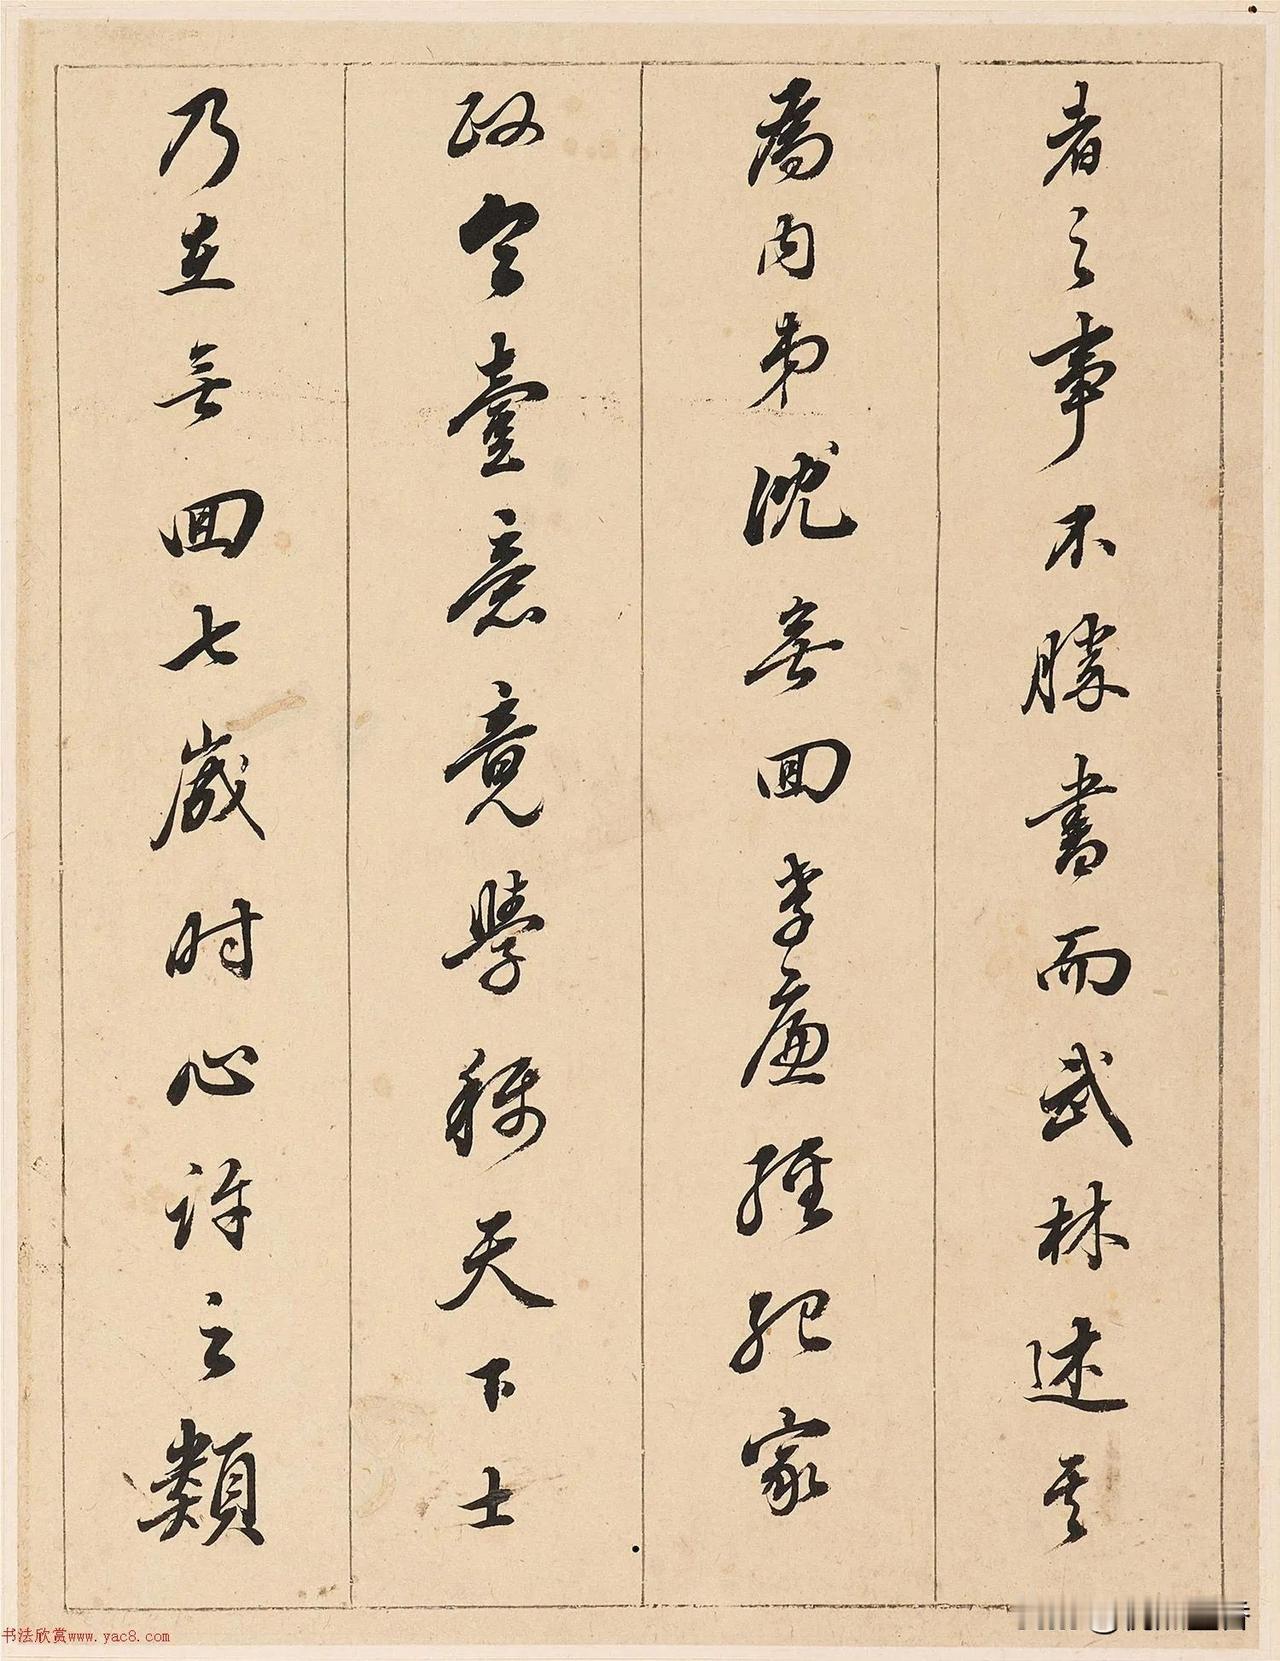 者之事不勝書而武林述其
為內弟沈無回孝廉經紀家
政令臺意竟學稱天下士
乃在無回七歲時心許之類
书法欣赏www.yac8.com